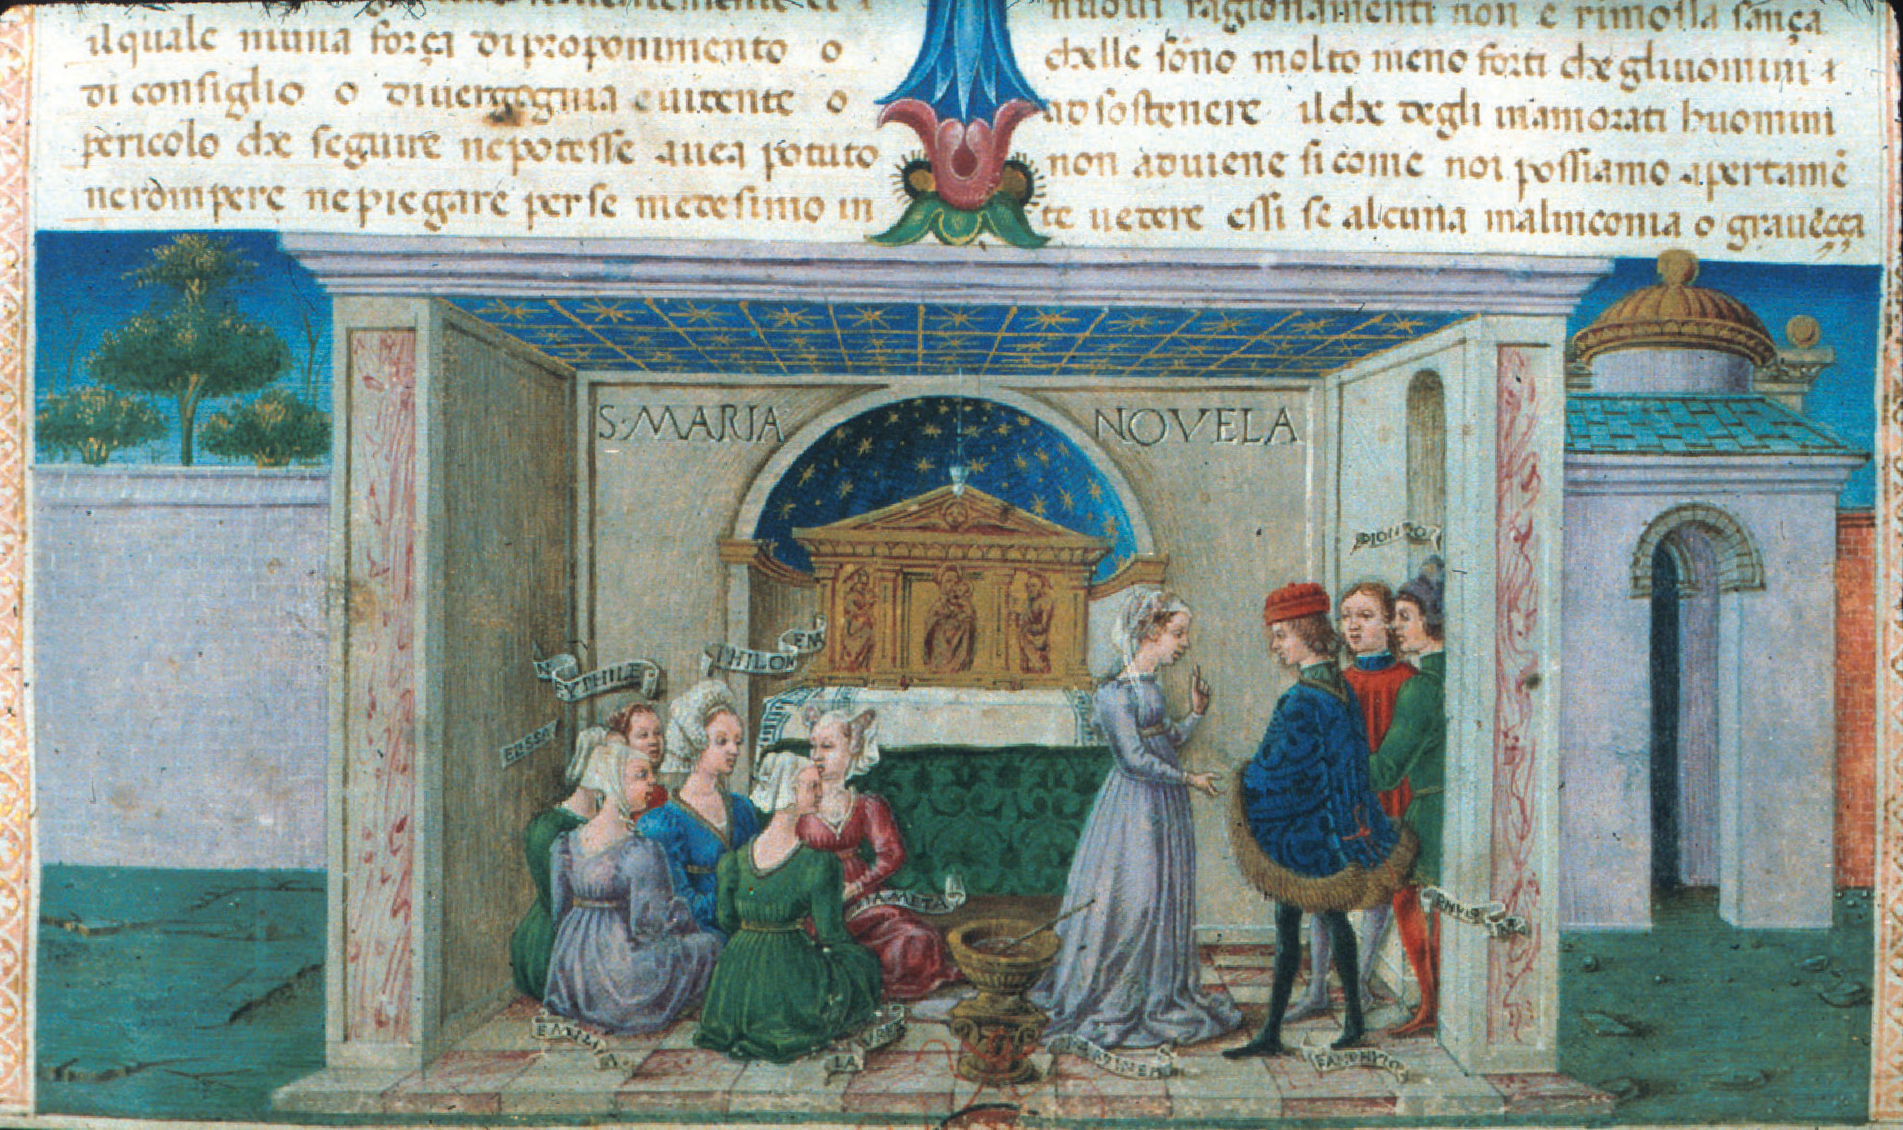 ilquale niuna força di proponimento o
di consiglio o di vergogna evidente o
pericolo che seguire ne potesse avea potuto
ne rompere ne piegare per se medesimo in
nuovi ragionamenti non e rimossa sança
chelle sono molto meno forti che gliuomini
ad sostenere il che degli inamorati huomini
non aduiene si come noi possiamo apertamē
te uedere essi se alcuna malinconia o graueçça
S·MARIA NOVELA
DIONEO
PHILOMENA
NEYPHILE
ELISSA
FIAMETA
EMILIA
LAVRE
PANPHYLO